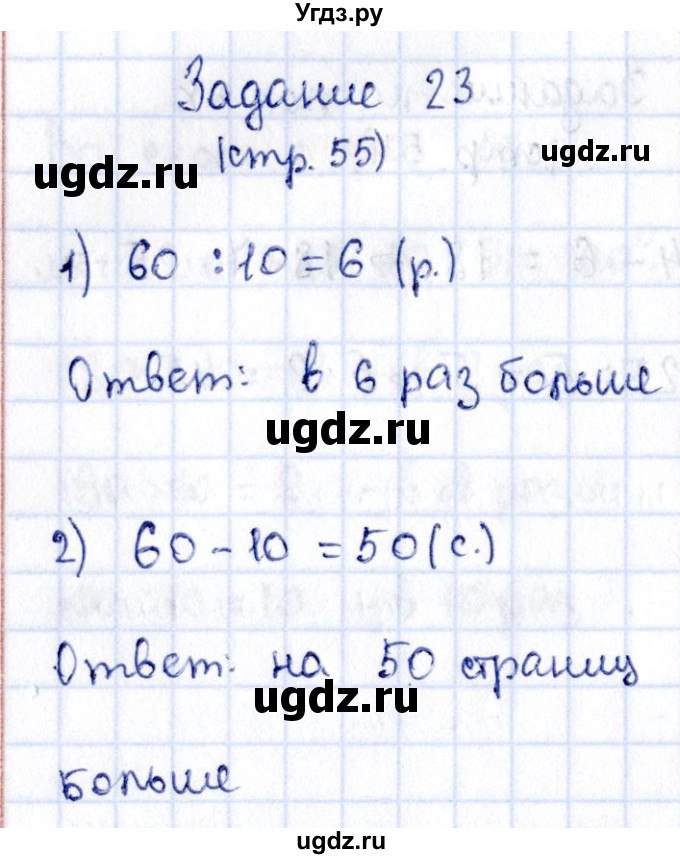 Угдз.ру
Задание 23
(стр. 55)
ugdz.ru
ugdz.ru
1) 60 : 10 = 6 (р.)
Ответ: в 6 раз больше
ugdz.ru
2) 60 - 10 = 50 (с.)
Ответ: на 50 страниц
ugdz.ru
больше
ugdz.ru